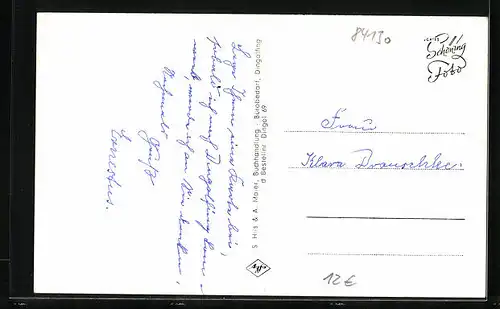 84130
echtes
Schöning
Foto
Lege Ihnen eine Karte bei,
sobald ich nach Dingolfing komme
werde
an Sie denken,
Nochmals
Grüße
S. Hill & A. Maier, Buchhandlung - Bürobedarf, Dingolfing
Bestellnr. Dingol 69
Frau
Klara Drauschke.
12 €